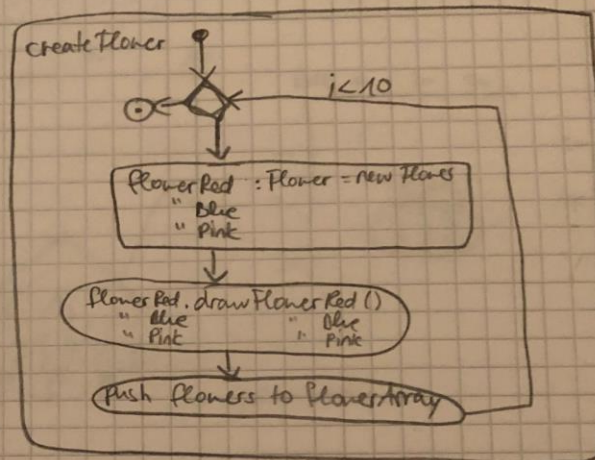 createFlower
i<10
flowerRed : Flower = new Flower
" Blue
" Pink
flowerRed.drawFlowerRed()
" Blue " Blue
" Pink " Pink
push flowers to flowerArray